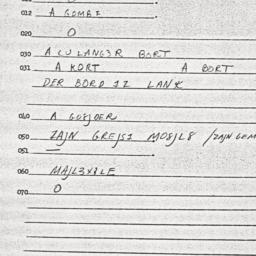 012 A GOMBI
020 O
030 A CU LANG3R BORT
031 A KORT A BORT
DER BORD IZ LANK
040 A GO8JDER
050 ZAJN GREJSI MO8JL8 /ZAJN GEM
051 —
060 MAJL3X8LE
070 O